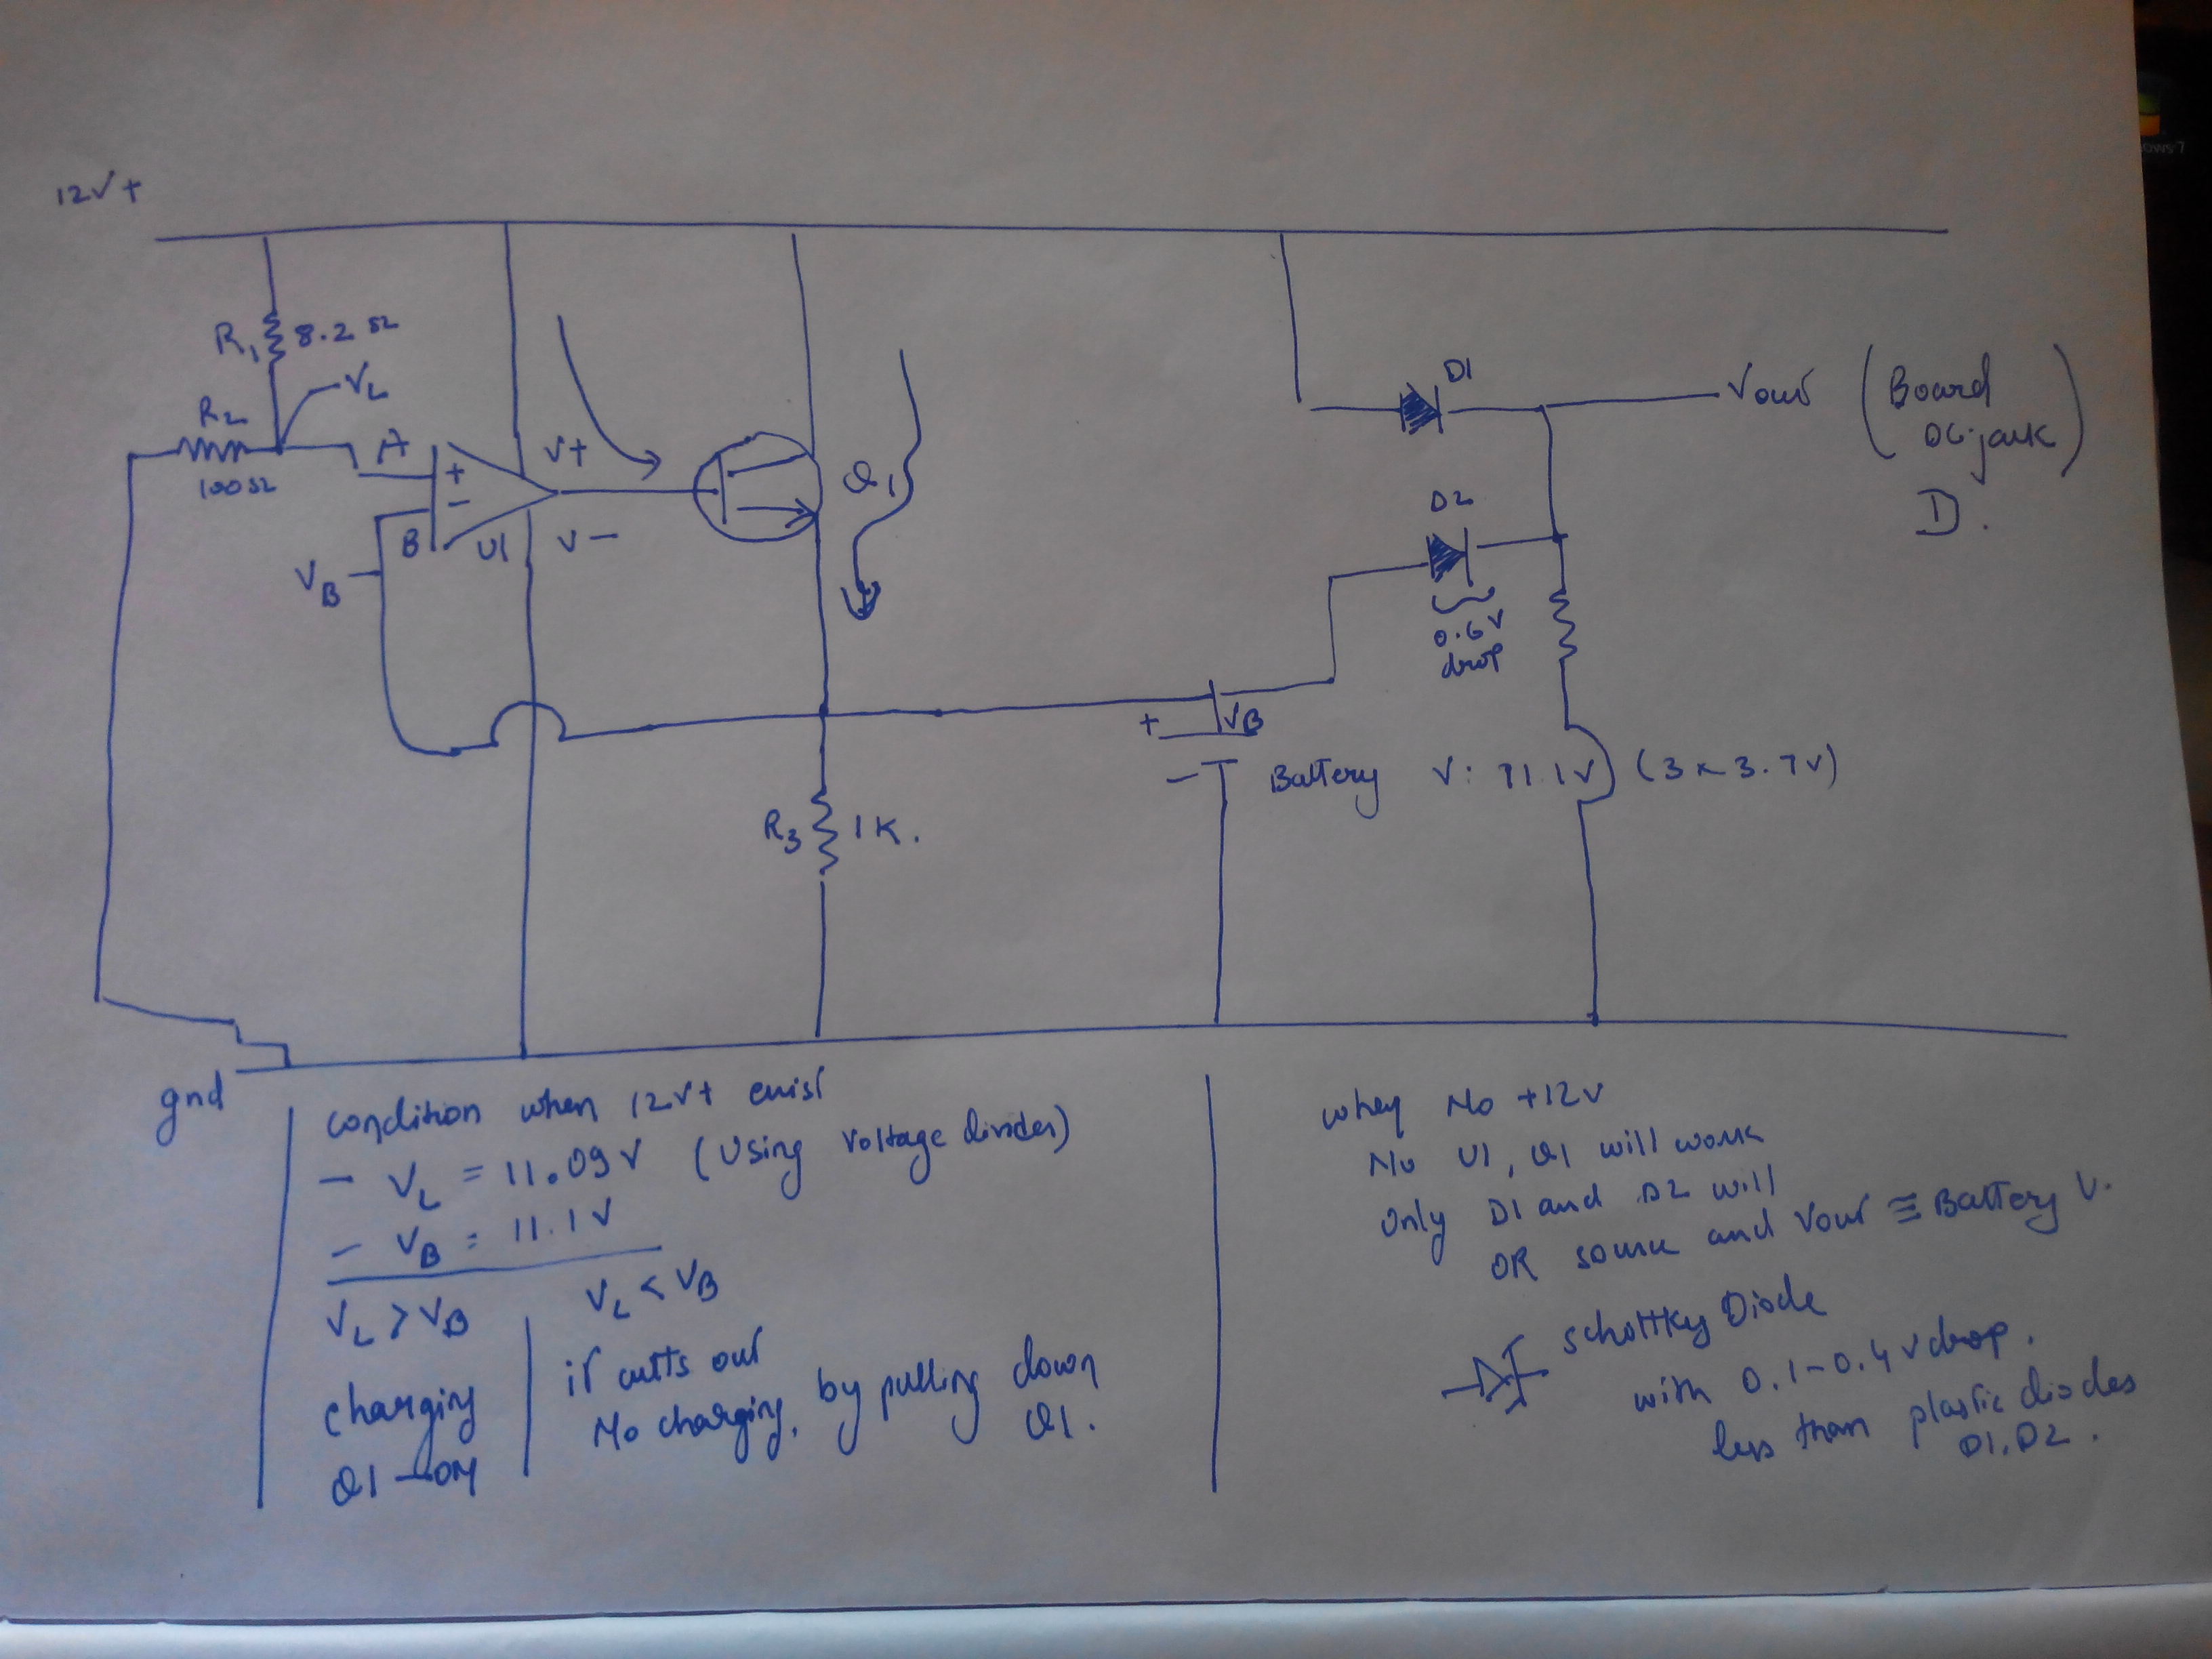 12V+
R1 8.2 Ω
VL
R2
100Ω
A
+
-
B
U1
V+
V-
VB
Q1
D1
Vout (Board
DC jack)
D.
D2
0.6V
drop
+
VB
-
Battery V: 11.1V (3 x 3.7V)
R3 1K.
gnd
condition when 12V+ exist
- VL = 11.09V (Using voltage divider)
- VB = 11.1V
VL > VB
charging
Q1 - ON
VL < VB
it cutts out
No charging, by pulling down
Q1.
when No +12V
No U1, Q1 will work
only D1 and D2 will
OR source and Vout ≡ Battery V.
schottky Diode
with 0.1-0.4v drop.
less than plastic diodes
D1, D2.